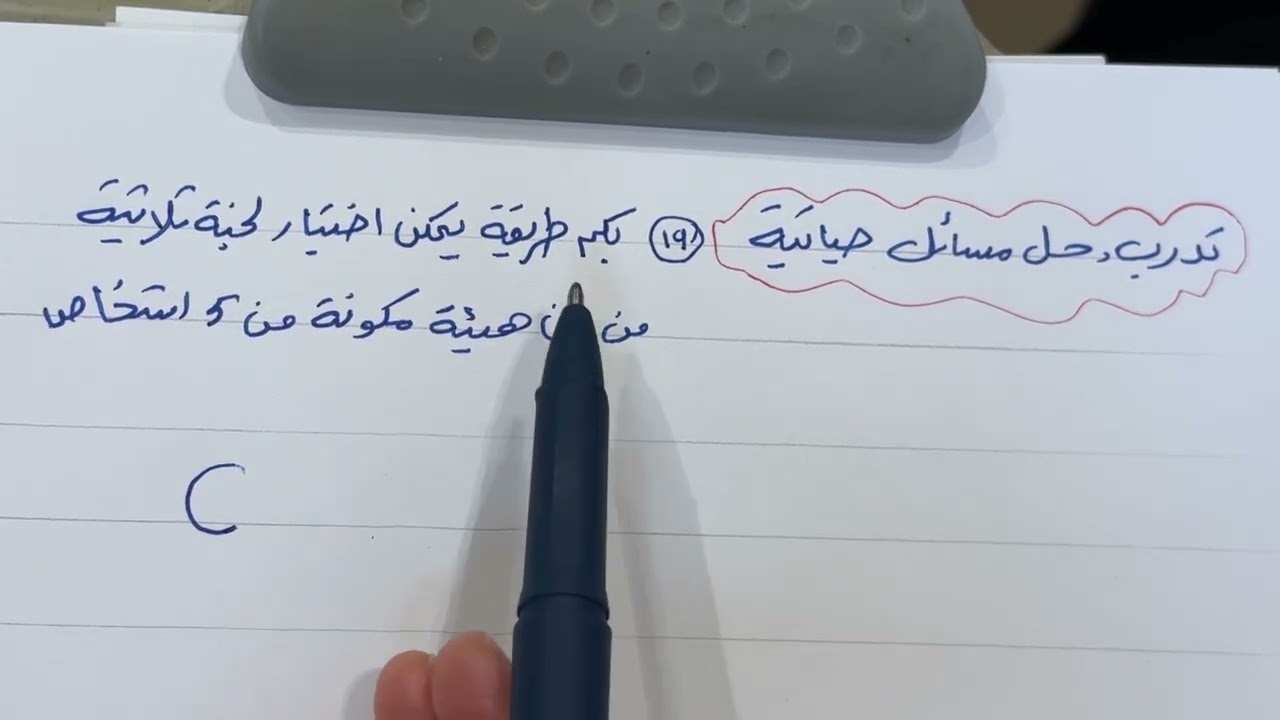 تدرب وحل مسائل حياتية ١٩ بكم طريقة يمكن اختيار لجنة ثلاثية
من هيئة مكونة من 5 اشخاص
C